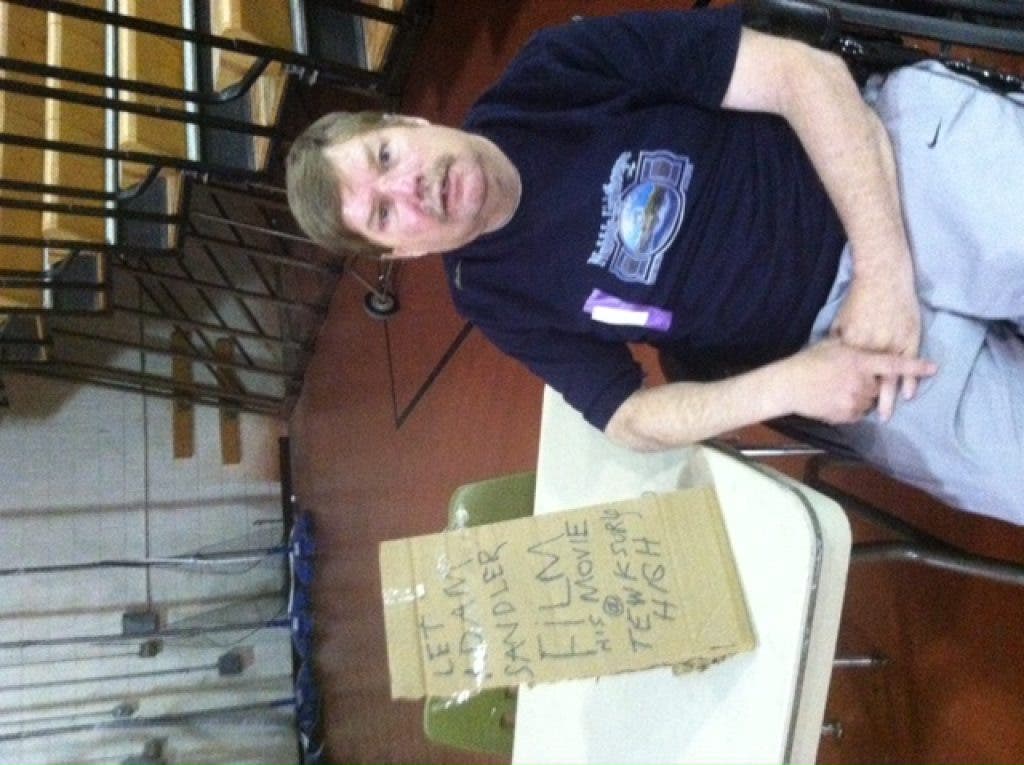 LET
ADAM
SANDLER
FILM
HIS MOVIE
@
TEWKSBURY
HIGH